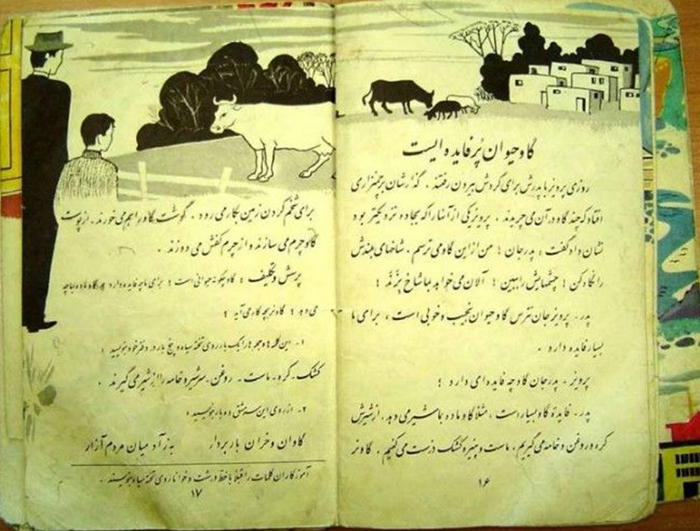 گاو حیوان پُر فایده ایست
روزی پرویز با پدرش برای گردش بیرون رفتند. گذارشان بر چمنزاری
افتاد که چند گاو در آن می چریدند. پرویز یکی از آنها را که بجاده نزدیکتر بود
نشان داد و گفت: پدر جان! من از این گاو می ترسم. شاخهای بلندش
را نگاه کن! چشمهایش را ببین! الآن می خواهد بما شاخ بزند!
پدر - پرویز جان نترس گاو حیوان نجیب و خوبی است، برای ما
بسیار فایده دارد.
پرویز - پدر جان گاو چه فایده ای دارد؟
پدر - فایدهٔ گاو بسیار است، مثلاً گاو ماده بما شیر می دهد. از شیرش
کره و روغن و خامه می گیریم، ماست و پنیر و کشک درست می کنیم. گاو نر
۱۶
برای شخم کردن زمین بکار می رود. گوشت گاو را هم می خورند. از پوست
گاو چرم می سازند و از چرم کفش می دوزند.
پرسش و تکلیف: گاو چگونه حیوانی است؟ برای ما چه فایده دارد؟ گاو ماده بما چه
می دهد؟ گاو نر بچه کار می آید؟
۱- این کلمه ها و جمله ها را یک بار روی تخته سیاه و پنج بار در دفتر خود بنویسید:
کشک - کره - ماست - روغن - سرشیر و خامه را از شیر می گیرند.
۲- از روی این سرمشق دو بار بنویسید:
گاوان و خران بار بردار به ز آدمیان مردم آزار
آموزگاران کلمات را قبلاً با خط درشت و خوانا روی تخته سیاه بنویسند.
۱۷